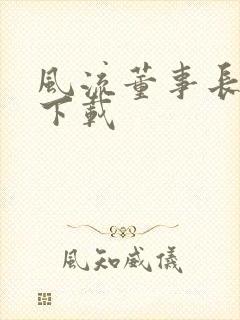 風流董事長
下載
風知威儀